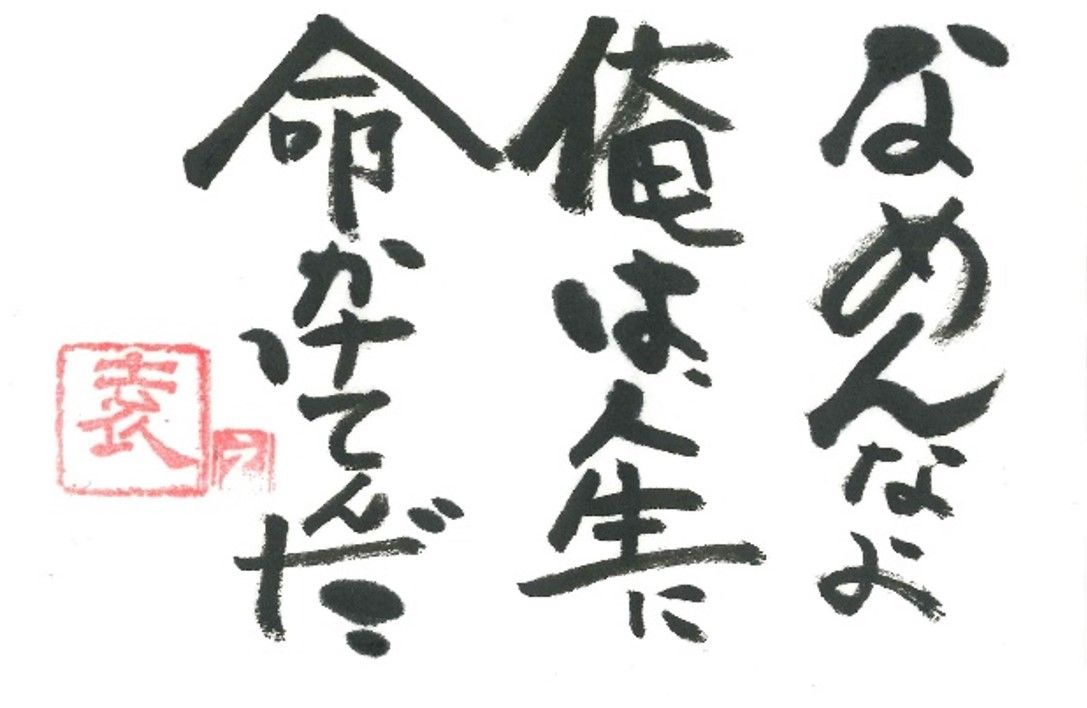 なめんなよ
俺は人生に
命かけてんだ
表